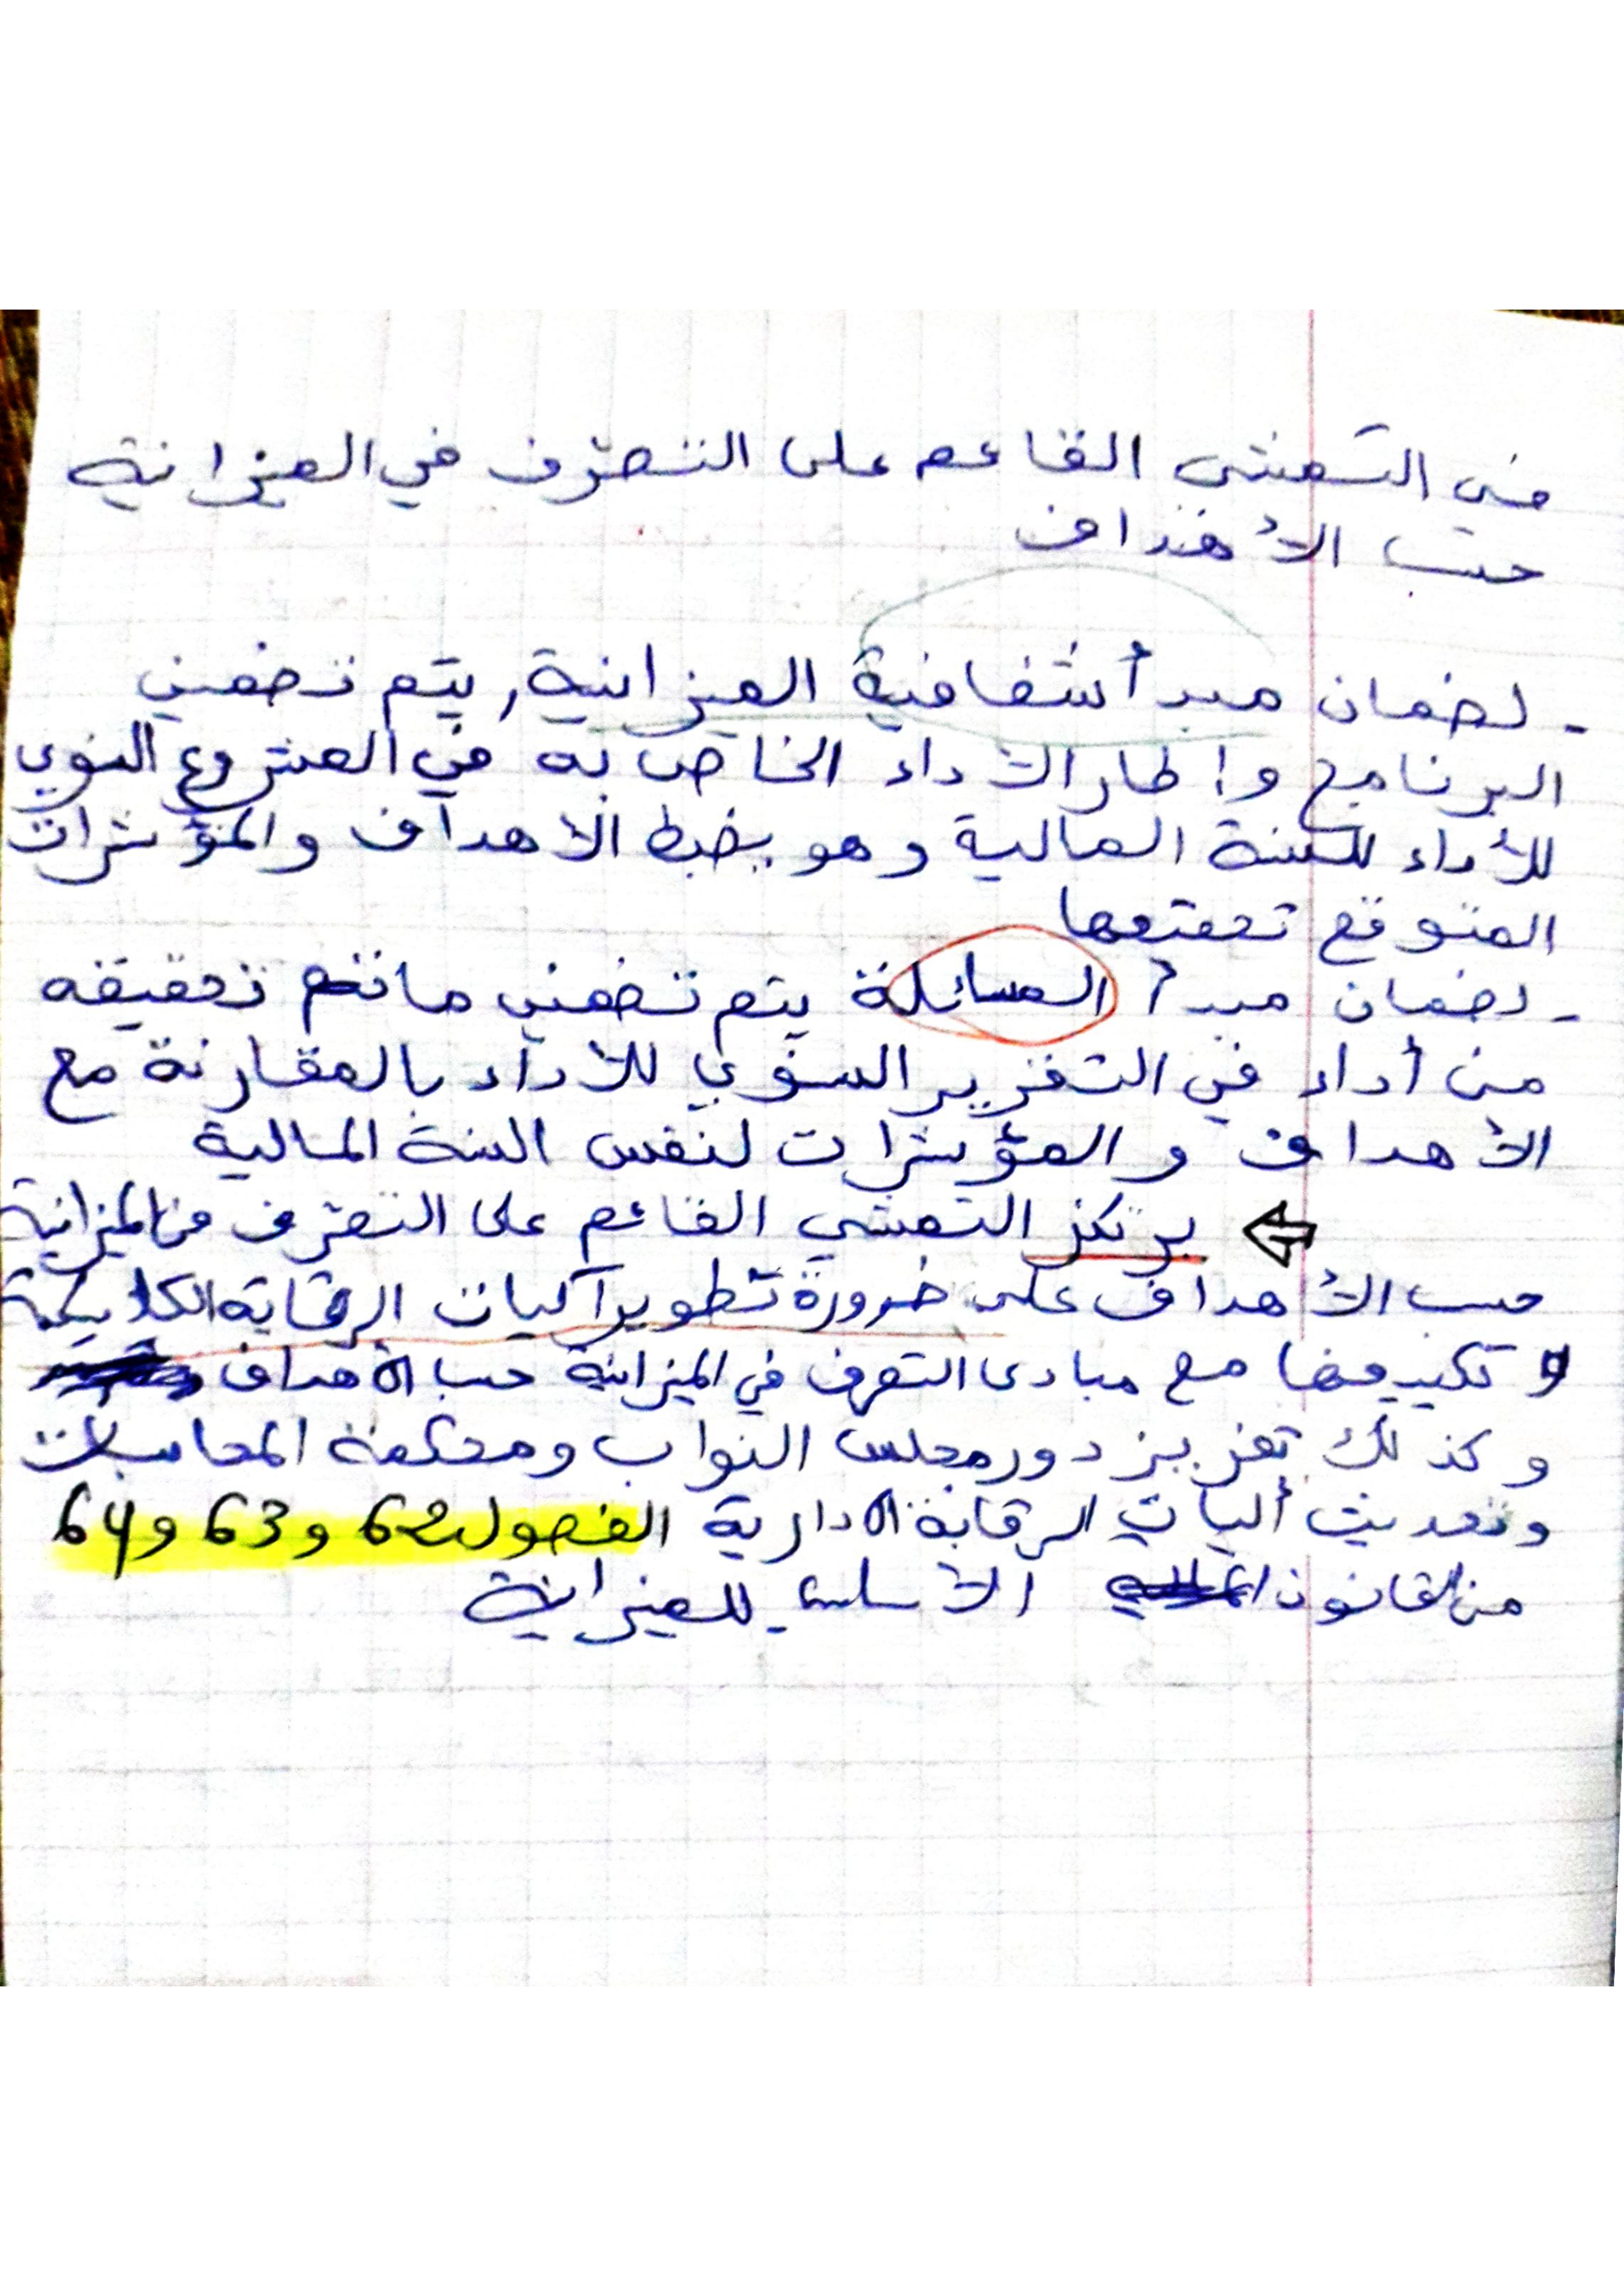 في التمشي القائم على التصرف في الميزانية
حسب الأهداف
- لضمان مبدأ شفافية الميزانية, يتم تضمين
البرنامج وإطار الأداء الخاص به في المشروع السنوي
للأداء للسنة المالية وهو يضبط الأهداف والمؤشرات
المتوقع تحقيقها
- لضمان مبدأ المسائلة يتم تضمين ما تم تحقيقه
من أداء في التقرير السنوي للأداء بالمقارنة مع
الأهداف والمؤشرات لنفس السنة المالية
⇦ يرتكز التمشي القائم على التصرف في الميزانية
حسب الأهداف على ضرورة تطوير آليات الرقابة الكلاسيكية
و تكييفها مع مبادئ التصرف في الميزانية حسب الأهداف
وكذلك تعزيز دور مجلس النواب ومحكمة المحاسبات
وتحديث آليات الرقابة الادارية الفصول 62 و 63 و 64
من القانون الأساسي للميزانية